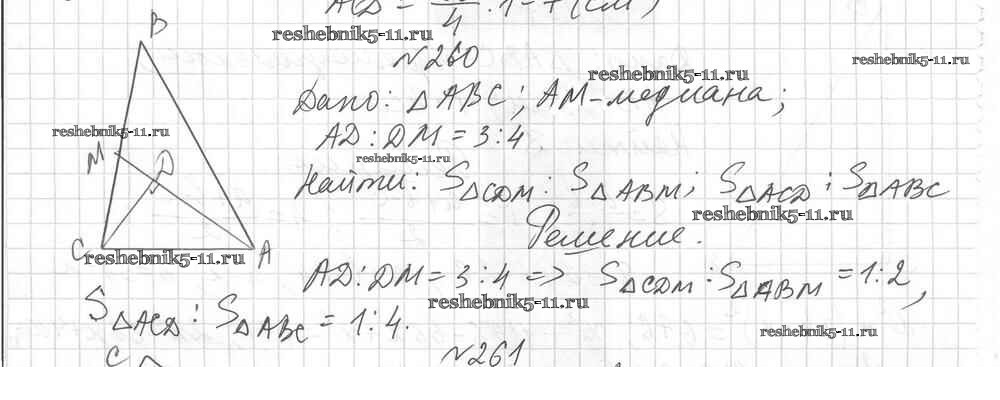 ACD = /4 · 1 = 7 (см)
reshebnik5-11.ru
№260
B
reshebnik5-11.ru
reshebnik5-11.ru
Дано: △ABC; AM-медиана;
reshebnik5-11.ru
AD : DM = 3 : 4
M
D
reshebnik5-11.ru
Найти: S△CDM : S△ABM; S△ACD : S△ABC
reshebnik5-11.ru
Решение.
C
A
reshebnik5-11.ru
AD : DM = 3 : 4 => S△CDM : S△ABM = 1 : 2,
reshebnik5-11.ru
S△ACD : S△ABC = 1 : 4.
reshebnik5-11.ru
C
№261